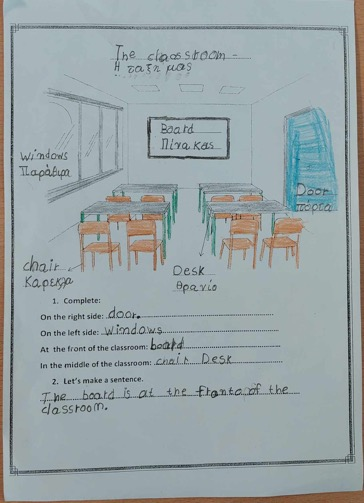 The classroom -
Η ταξη μας
Board
Πίνακας
Windows
Παράθυρα
Door
πόρτα
chair
Καρεκλα
Desk
θρανίο
1. Complete:
On the right side: door.
On the left side: windows
At the front of the classroom: board
In the middle of the classroom: chair Desk
2. Let's make a sentence.
The board is at the fronta of the
classroom.